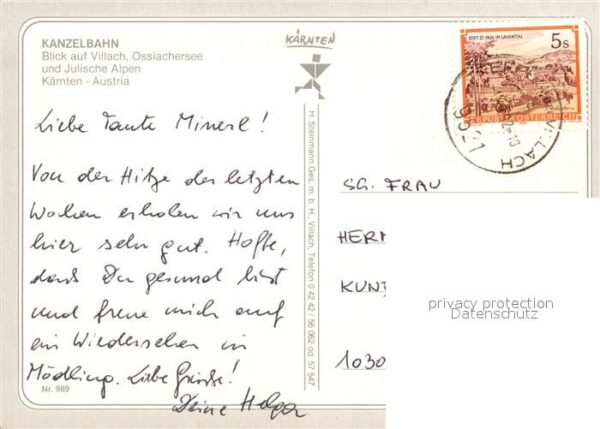 KANZELBAHN
Blick auf Villach, Ossiachersee
und Julische Alpen
Kärnten - Austria
KÄRNTEN
Liebe Tante Minerl!
Von der Hitze der letzten
Wochen erholen wir uns
hier sehr gut. Hoffe,
dass Du gesund bist
und freue mich auf
ein Wiedersehen in
Mödling. Liebe Grüsse!
Deine Helga
Nr. 989
H. Steinmann Ges. m. b. H., Villach, Telefon 0 42 42 / 56 062 od. 57 547
STIFT ST. PAUL IM LAVANTTAL
5s
REPUBLIK ÖSTERREICH
VILLACH
SG. FRAU
HER
KUN
1030
privacy protection
Datenschutz